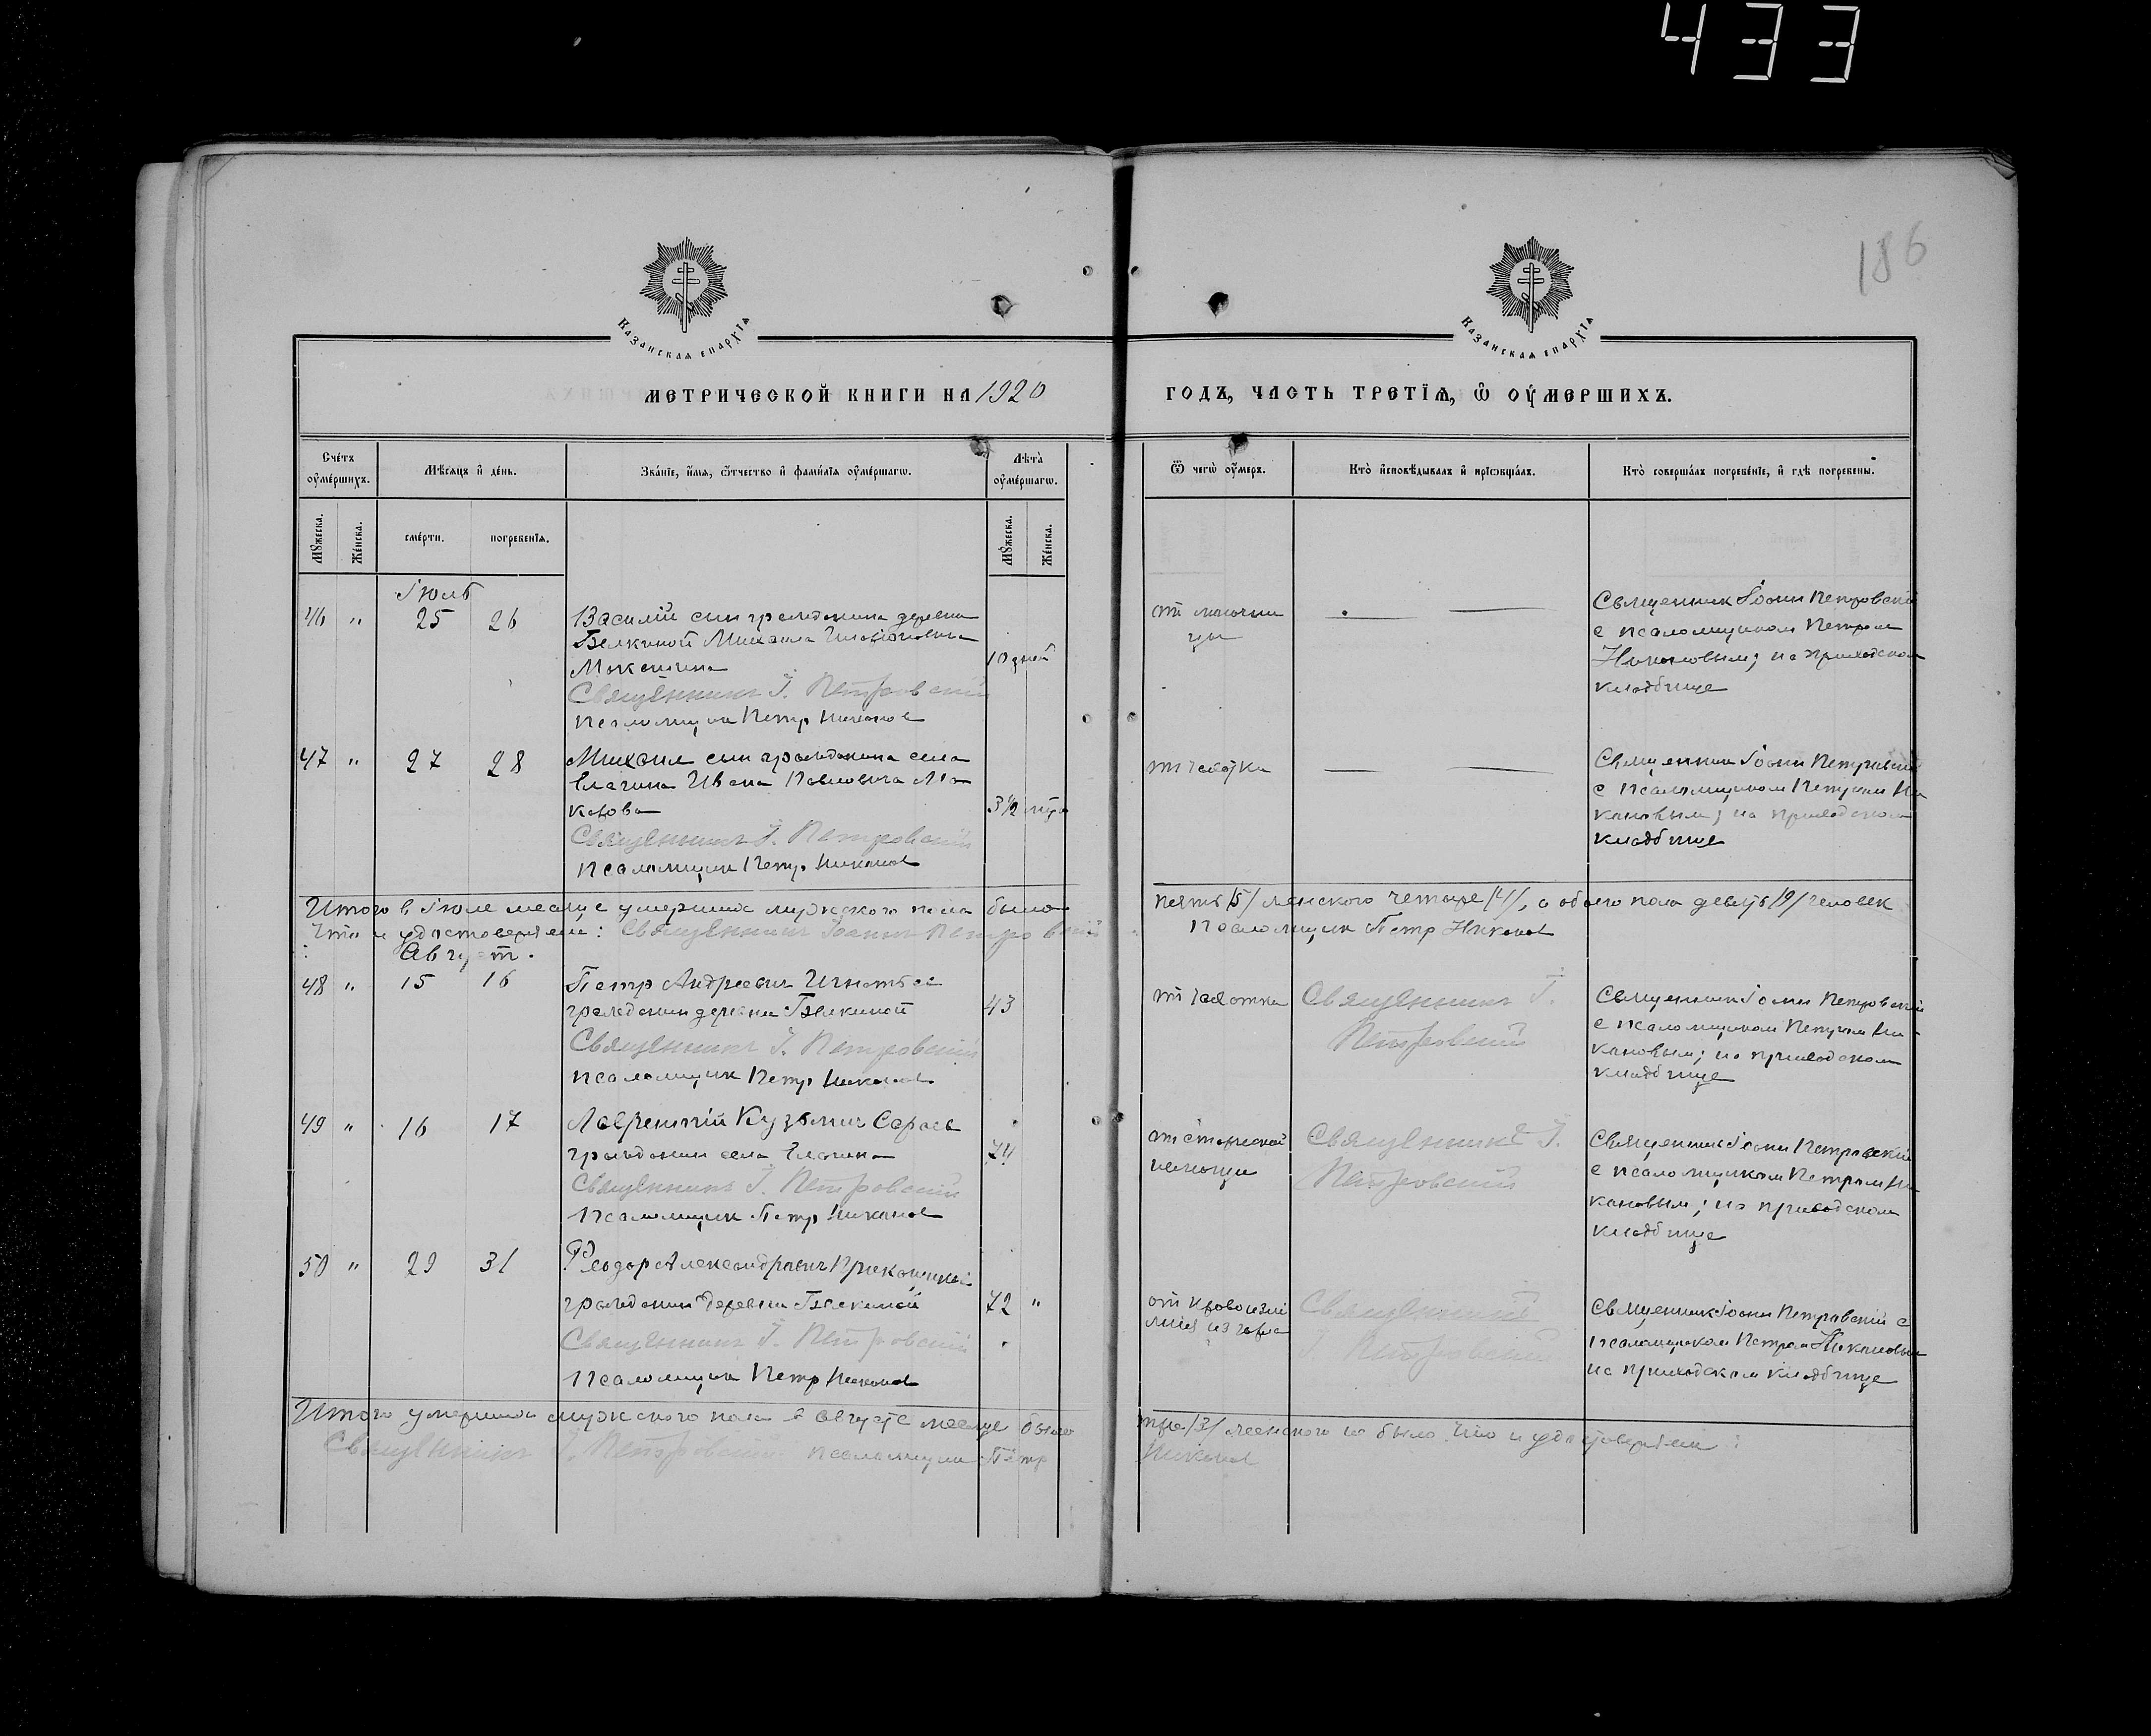 433
186
Казанская епархїя
Казанская епархїя
МЕТРИЧЕСКОЙ КНИГИ НА 1920
ГОДЪ, ЧАСТЬ ТРЕТЇѦ, Ѽ ОУМЕРШИХЪ.
Счетъ оумершихъ.
Мѣсяцъ и день.
Званїе, имя, ѿтчество и фамилїя оумершагѡ.
Лѣта оумершагѡ.
Ѿ чегѡ оумеръ.
Кто исповѣдывалъ и прїѡбщалъ.
Кто совершалъ погребенїе, и гдѣ погребены.
Мꙋжеска.
Женска.
смерти.
погребенїя.
Мꙋжеска.
Женска.
Іюль
46 " 25 26
Василій сын гражданина деревни
Михаила
10 дней
Священникъ І. Петровскій
псаломщик Петр Никонов
от
Священник Іоанн Петровский
с псаломщиком Петром
Никоновым; на приходском
кладбище
47 " 27 28
Михаил сын гражданина села
Ивана Павловича Ма
карова
3½
Священникъ І. Петровскій
псаломщик Петр Никонов
от чахотки
Священник Іоанн Петровский
с псаломщиком Петром Ни
кановым; на приходском
кладбище
Итого в Іюле месяце умерших мужского пола было
пять /5/ женского четыре /4/, а обоего пола девять /9/ человек
Что и удостоверяем: Священникъ Іоаннъ Петровскій
Псаломщик Петр Никонов
Август.
48 " 15 16
Петр Андреевич Игнатьев
гражданин деревни
43
Священникъ І. Петровскій
псаломщик Петр Никонов
от чахотки
Священникъ І.
Петровскій
Священник Іоанн Петровский
с псаломщиком Петром Ни
кановым; на приходском
кладбище
49 " 16 17
Лаврентій Кузьмич Сараев
гражданин села
74
Священникъ І. Петровскій
Псаломщик Петр Никонов
от старческой
немощи
Священникъ І.
Петровскій
Священник Іоанн Петровский
с псаломщиком Петром Ни
кановым; на приходском
кладбище
50 " 29 31
Феодор Александрович
гражданин деревни
72 "
Священникъ І. Петровскій
Псаломщик Петр Никонов
от кровоизли
яния из горла
Священникъ
І. Петровскій
Священник Іоанн Петровский с
псаломщиком Петром Никановым
на приходском кладбище
Итого умерших мужского пола в августе месяце было
три /3/ женского не было. Что и удостоверяем:
Священникъ І. Петровскій псаломщик Петр
Никонов